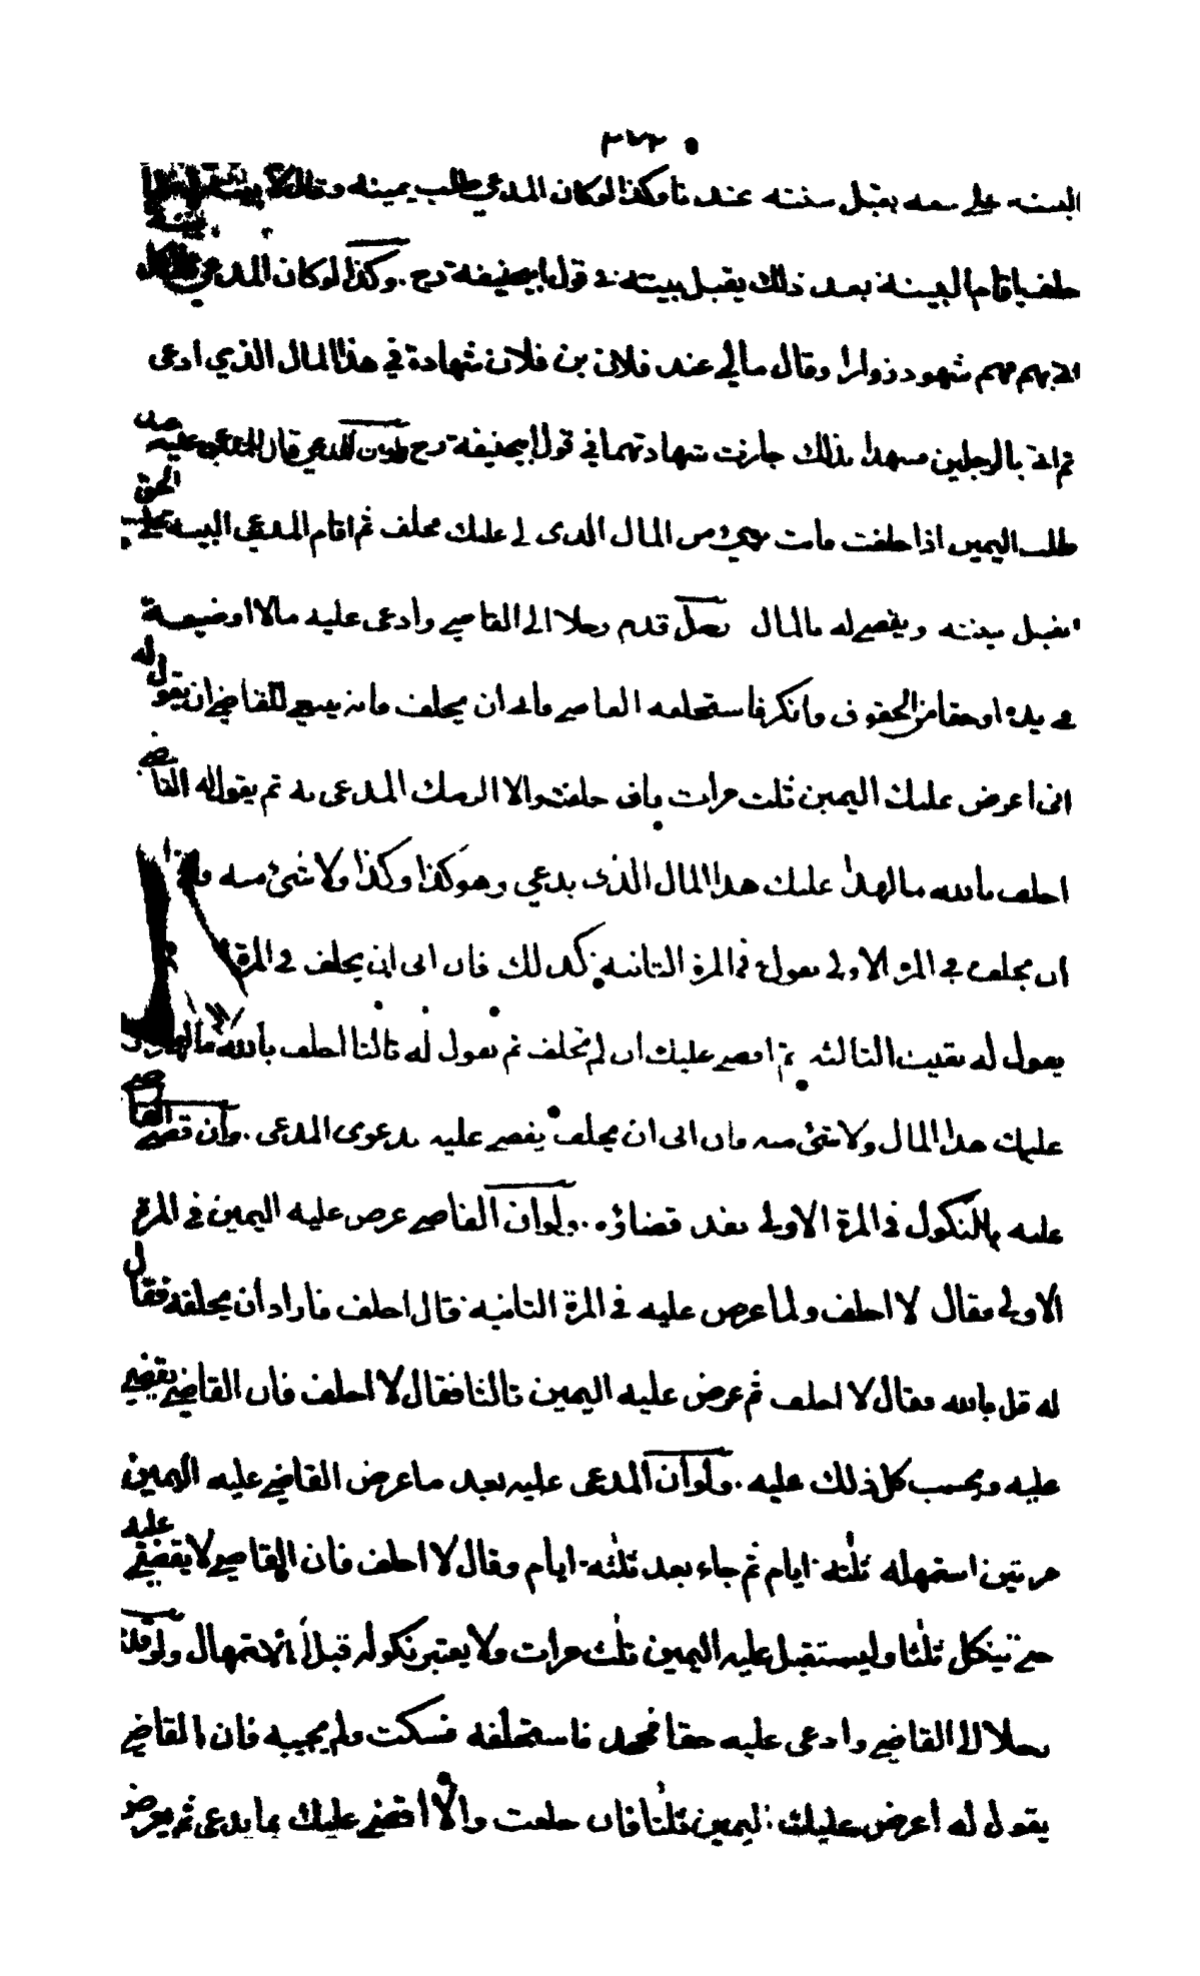 ٣٦٢
البينة على يقبل بينته عندنا وكذا لو كان المدعي طلب يمينه وقال لا
حلف فاقام البينة بعد ذلك يقبل بينته في قول ابيحنيفة رح . وكذا لو كان المدعي قال كل
شهود زور او قال مالي عند فلان بن فلان شهادة في هذا المال الذي ادعى
ثم اتى بالرجلين فشهدا بذلك جازت شهادتهما في قول ابيحنيفة رح ولو ان المدعي قال للمدعى عليه حين
طلب اليمين اذا حلفت فانت بريء من المال الذى لي عليك فحلف ثم اقام المدعي البينة على الحق
يقبل بينته ويقضي له بالمال رجل قدم رجلا الى القاضي وادعى عليه مالا او ضيعة
في يده او حقا من الحقوق وانكر فاستحلفه القاضي فابى ان يحلف فانه ينبغي للقاضي ان يقول له
اني اعرض عليك اليمين ثلث مرات فان حلفت والا الزمتك المدعى به ثم يقول له القاضي
احلف بالله ما لهذا عليك هذا المال الذى يدعي وهو كذا وكذا ولا شئ منه فاذا
ان يحلف في المرة الاولى يقول في المرة الثانية كذلك فان ابى ان يحلف في المرة
يقول له بقيت الثالثة ثم اقضي عليك ان لم تحلف ثم يقول له ثالثا احلف بالله ما لهذا
عليك هذا المال ولا شئ منه فان ابى ان يحلف يقضي عليه بدعوى المدعى . وان قضى القاضي
عليه بالنكول في المرة الاولى نفذ قضاؤه . ولو ان القاضي عرض عليه اليمين في المرة
الاولى فقال لا احلف ولما عرض عليه في المرة الثانية قال احلف فاراد ان يحلفه فقال
له قل بالله فقال لا احلف ثم عرض عليه اليمين ثالثا فقال لا احلف فان القاضي يقضي
عليه ويحسب كل ذلك عليه . ولو ان المدعى عليه بعد ما عرض القاضي عليه اليمين
مرتين استمهله ثلثة ايام ثم جاء بعد ثلثة ايام وقال لا احلف فان القاضي لا يقضي عليه
حتى ينكل ثلثا وليستقبل عليه اليمين ثلث مرات ولا يعتبر نكوله قبل الاستمهال ولو قدم
رجلا الى القاضي وادعى عليه حقا فجحد فاستحلفه فسكت ولم يجيبه فان القاضي
يقول له اعرض عليك اليمين ثلثا فان حلفت والا اقضي عليك بما يدعي ثم يعرض